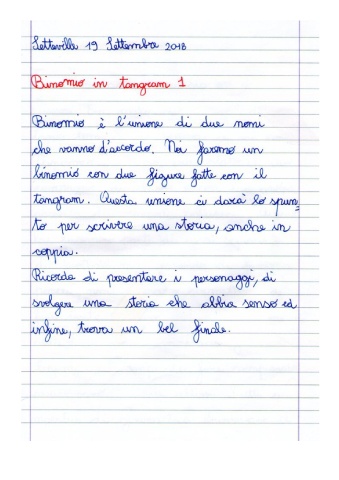 Settevilla 19 Settembra 2018
Binomio in tangram 1
Binomio è l'unione di due nomi
che vanno d'accordo. Noi faremo un
binomio con due figure fatte con il
tangram. Questa unione ci darà lo spun=
to per scrivere una storia, anche in
coppia.
Ricorda di presentare i personaggi, di
svolgere una storia che abbia senso ed
infine, trova un bel finale.